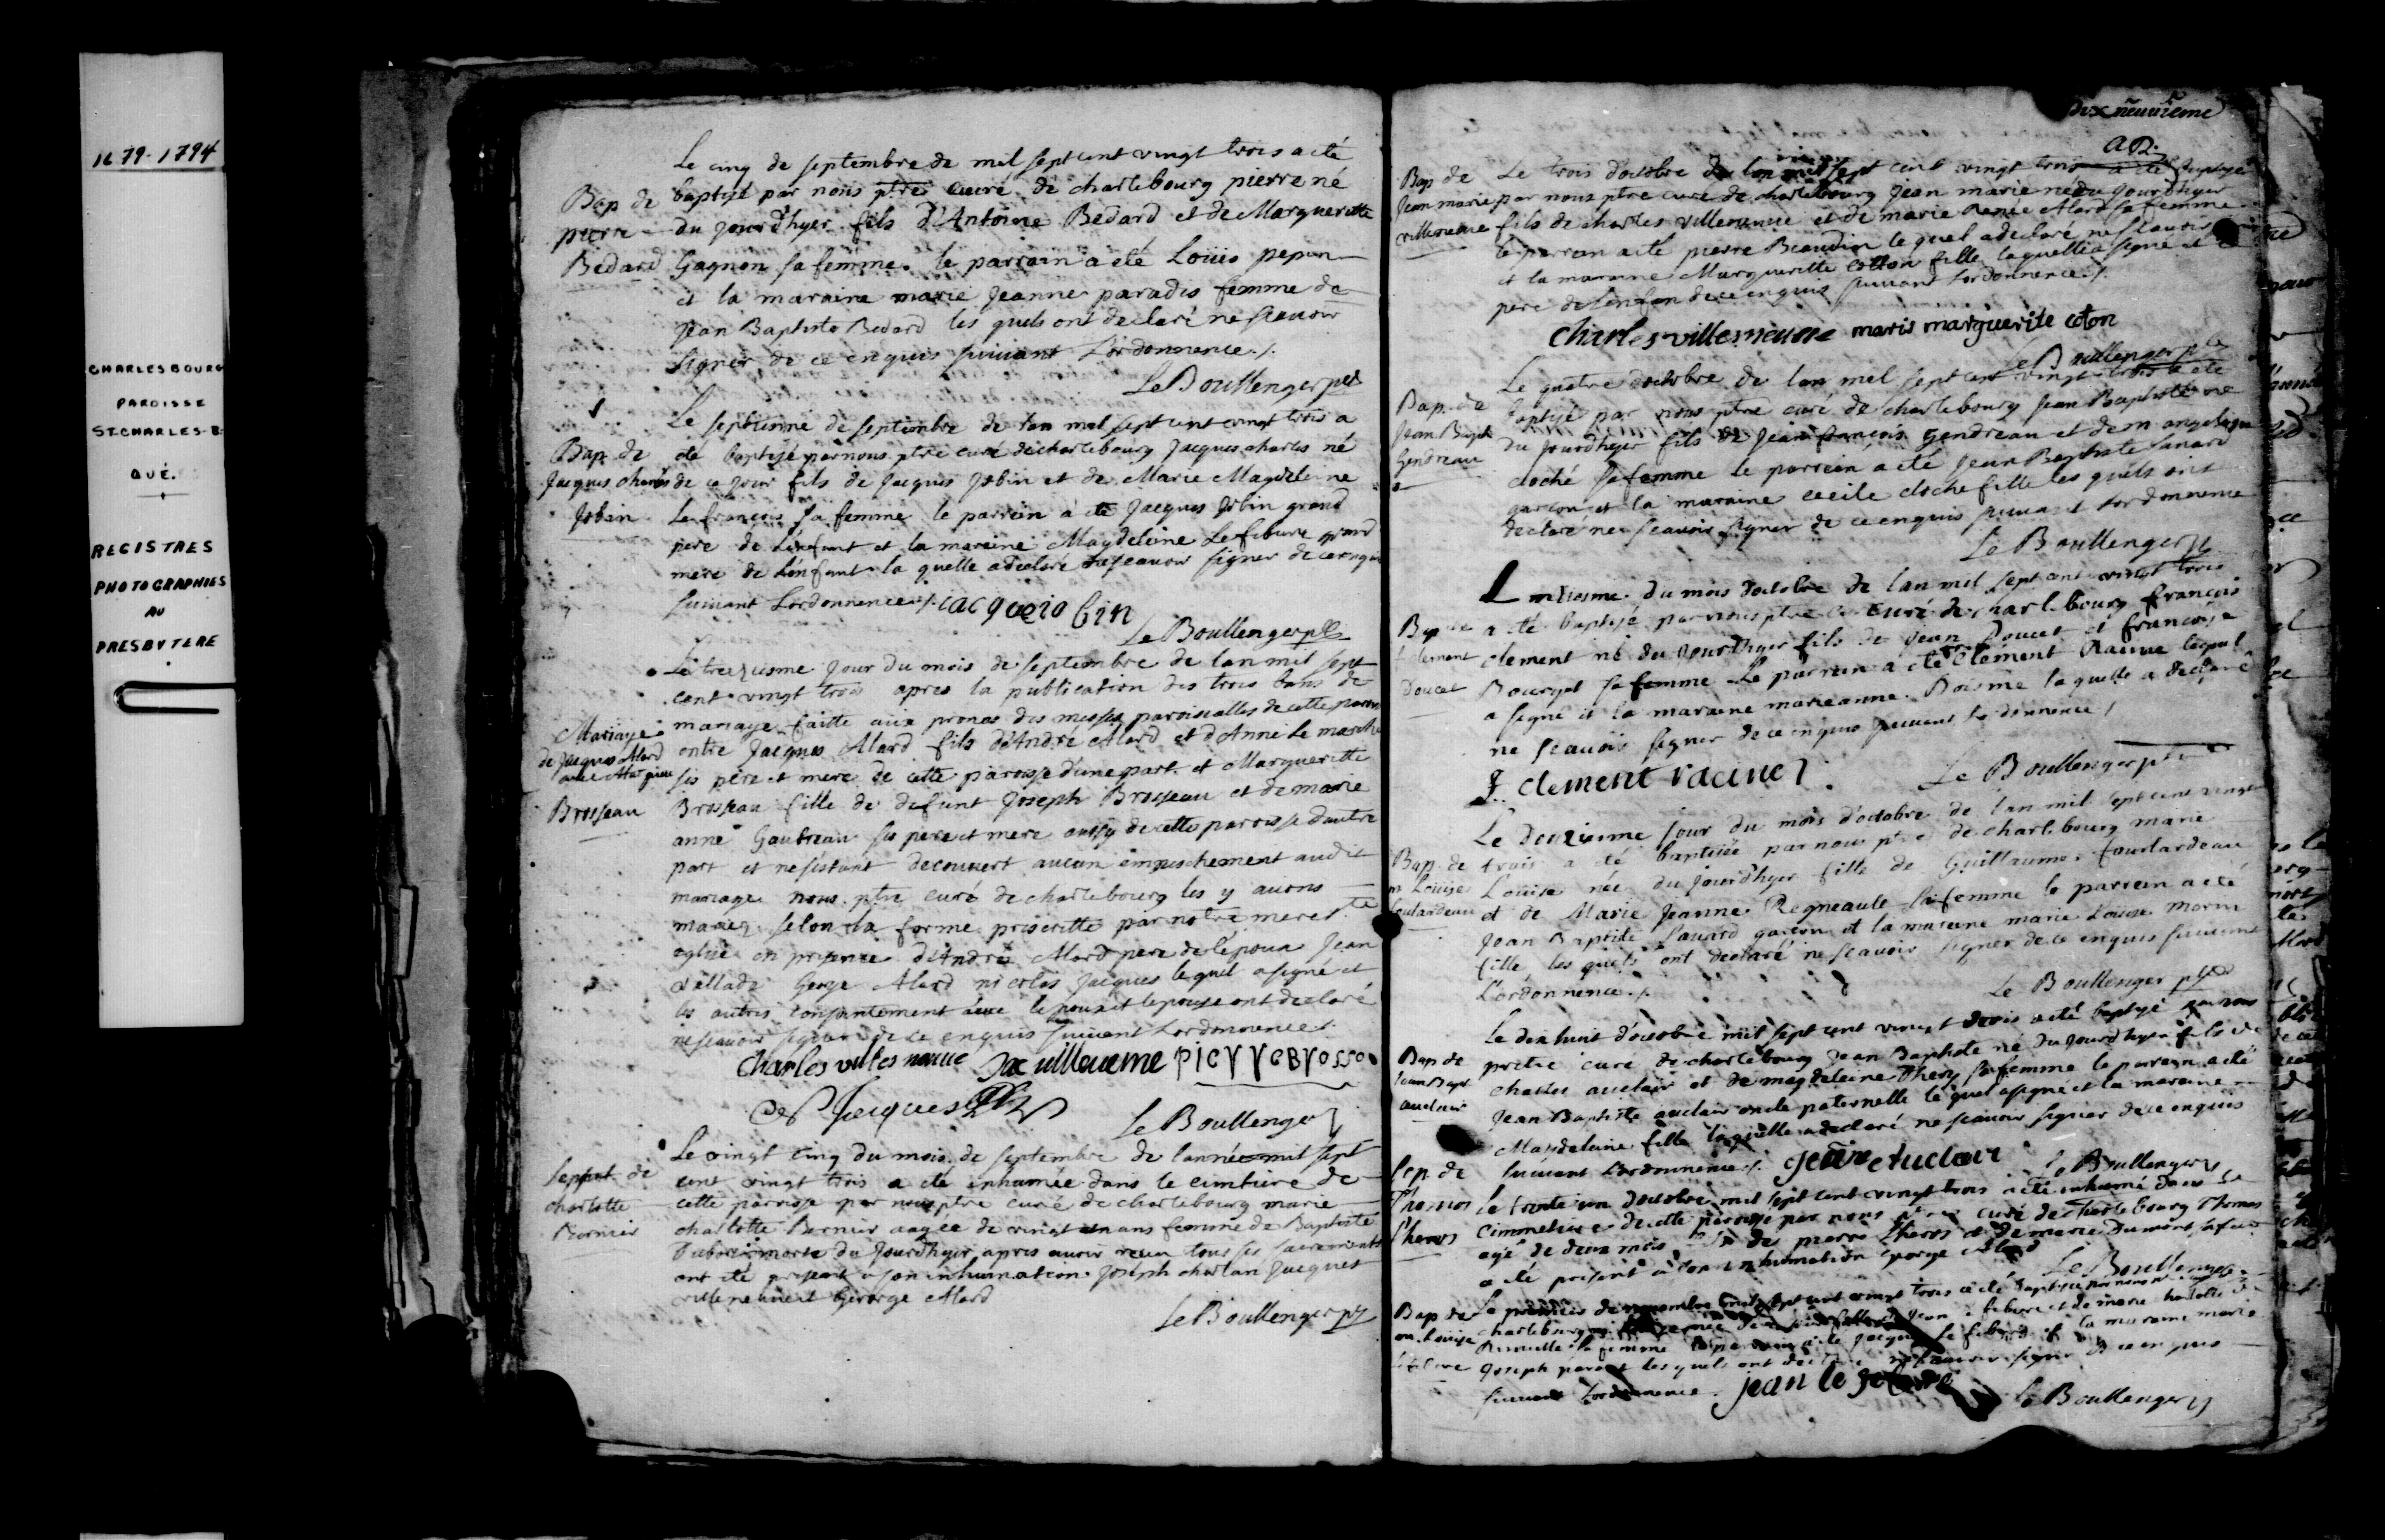 1679-1794
CHARLESBOURG
PAROISSE
ST-CHARLES-B.
QUÉ.
REGISTRES
PHOTOGRAPHIÉS
AU
PRESBYTERE
Le cinq de septembre de mil sept cent vingt trois a eté
Bap de baptisé par nous ptre curé de charlebourg pierre né
pierre du jourd'hyer fils d'Antoine Bedard et de Margueritte
Bedard Gagnon sa femme. le parrain a eté Loüis pepin
et la maraine marie Jeanne paradis femme de
Jean Baptiste Bedard les quels ont declaré ne scauoir
signer de ce enquis suiuant L'ordonnence ./.
LeBoullenger ptre
Le septienme de septembre de l'an mil sept cent vingt trois a
Bap. de eté baptisé par nous ptre curé de charlebourg Jacques charles né
Jacques charles de ce jour fils de Jacques Jobin et de Marie Magdeleine
Jobin Lefrançois sa femme le parrein a eté Jacques Jobin grand
pere de L'enfant et la mareine Magdeleine Lefebure grand
mere de L'enfant la quelle a declaré ne scauoir signer de ce enquis
suiuant Lordonnence ./. iacque io bin
LeBoullenger ptre
Le treziesme jour du mois de septembre de lan mil sept
cent vingt trois apres la publication des trois bans de
Mariage mariage faitte aux prones des messes paroissialles de cette paroisse
de Jacques Alard entre Jacques Alard fils d'André Alard et d'Anne le marché
ses pere et mere de cette paroisse d'une part et Marguerite
Brosseau Brosseau fille de defunt Joseph Brosseau et de marie
anne Gautreau ses pere et mere aussy de cette paroisse d'autre
part et ne s'estant decouuert aucun empeschement audit
mariage nous ptre curé de charlebourg les y auons
mariez selon la forme prescritte par notre mere ste
eglise en presence d'André Alard pere de lepoux Jean
George Alard nicolas Jacques lequel a signé et
les autres conjointement auec lepoux et lepouse ont declaré
ne scauoir signer de ce enquis suiuant Lordonnence ./.
Charles villes neuue Jac uilleneuue pierre Brosso
Jacques
LeBoullenger
Le vingt cinq du mois de septembre de l'année mil sept
Seppt. de cent vingt trois a eté inhumée dans le cimtiere de
charlotte cette parroisse par nous ptre curé de charlebourg marie
Bernier charlotte Bernier aagée de vingt un ans femme de Baptiste
morte du jourdhyer apres auoir receu tous ses sacrements
ont eté present a son inhumation Joseph Jacques
villeneuue et George Alard
LeBoullenger ptre
Dix neuuieme
Bap de Le trois d'octobre de lan mil sept cent vingt trois a eté baptisé
Jean marie par nous ptre curé de charlebourg Jean marie né du jourdhyer
villeneuue fils de charles villeneuue et de marie Renée Alard sa femme
le parrein a eté pierre Beaudin le quel a declaré ne scauoir
et la maraine Marguerite cotton fille laquelle a signé et le
pere de l'enfan de ce enquis suiuant Lordonnence ./.
Charles villesneuue marie marguerite coton
LeBoullenger ptre
Le quatre doctobre de lan mil sept cent vingt trois a eté
Bap. de baptisé par nous ptre curé de charlebourg Jean Baptiste né
Jean Bapt. du jourdhyer fils de Jean françois Gendreau et de m angelique
Gendreau cloché sa femme le parrein a eté Jean Baptiste
garcon et la maraine cecile cloche fille les quels ont
declaré ne scauoir signer de ce enquis suiuant Lordonnence
Le Boullenger ptre
du mois doctobre de lan mil sept cent vingt trois
Bap de a eté baptisé par nous ptre curé de charlebourg françois
f. clement clement né du jourdhyer fils de Jean Doucet et françoise
Doucet Bourget sa femme le parrein a eté Clement Racine lequel
a signé et la maraine marieanne la quelle a declaré
ne scauoir signer de ce enquis suiuant Lordonnence /
f. Clement racine
Le Boullenger ptre
Le douzieme jour du mois d'octobre de l'an mil sept cent vingt
Bap. de trois a eté baptisée par nous ptre de charlebourg marie
m Louise Louise née du jourdhyer fille de Guillaume fourlardeau
et de Marie Jeanne Regneault sa femme le parrein a eté
Jean Baptiste garcon et la maraine marie Louise morin
fille, les quels ont declaré ne scauoir signer de ce enquis suiuant
L'ordonnence ./.
Le Boullenger ptre
Le dix huit d'octobre mil sept cent vingt trois a eté baptisé par nous
Bap. de pretre curé de charlebourg Jean Baptiste né du jourdhyer fils de
Jean Bapt. charles auclair et de magdeleine Thery sa femme le parrein a eté
auclair Jean Baptiste auclair oncle paternelle le quel a signé et la maraine
Magdeleine fille laquelle a declaré ne scauoir signer de ce enquis
suiuant Lordonnence ./. Jean Auclair
Le Boullenger
Sep. de
Thomas Le trente un doctobre mil sept cent vingt trois a eté inhumé dans le
cimmetiere de cette paroisse par nous ptre curé de charlebourg Thomas
agé de deux mois fils de pierre et de marie Dumont sa femme
a eté present a son inhumation George Alard
Le Boullenger
Bap de Le premier de nouembre mil sept cent vingt trois a eté baptisée par nous
m. Louise charlebourg
sa femme le parrein a eté Jacques le febure et la maraine marie
Joseph les quels ont declaré ne scauoir signer de ce enquis
suiuant Lordonnence. jean le febure
Le Boullenger